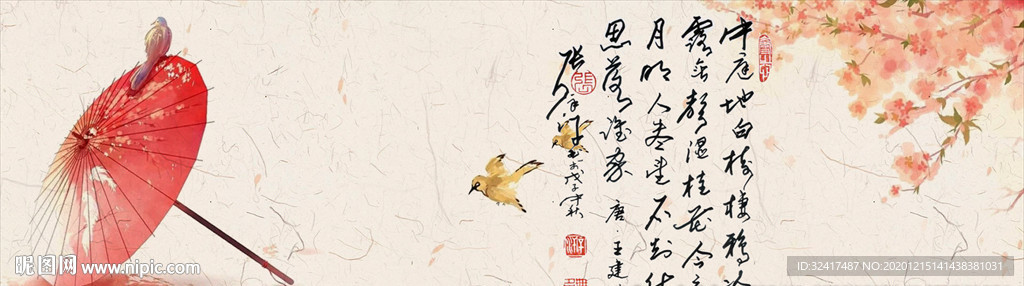 中庭地白树棲鸦冷
露無聲湿桂花今
月明人尽望不知秋
思落谁家 唐·王建
书於戊子中秋
昵图网 www.nipic.com
ID:32417487 NO:20201215141438381031